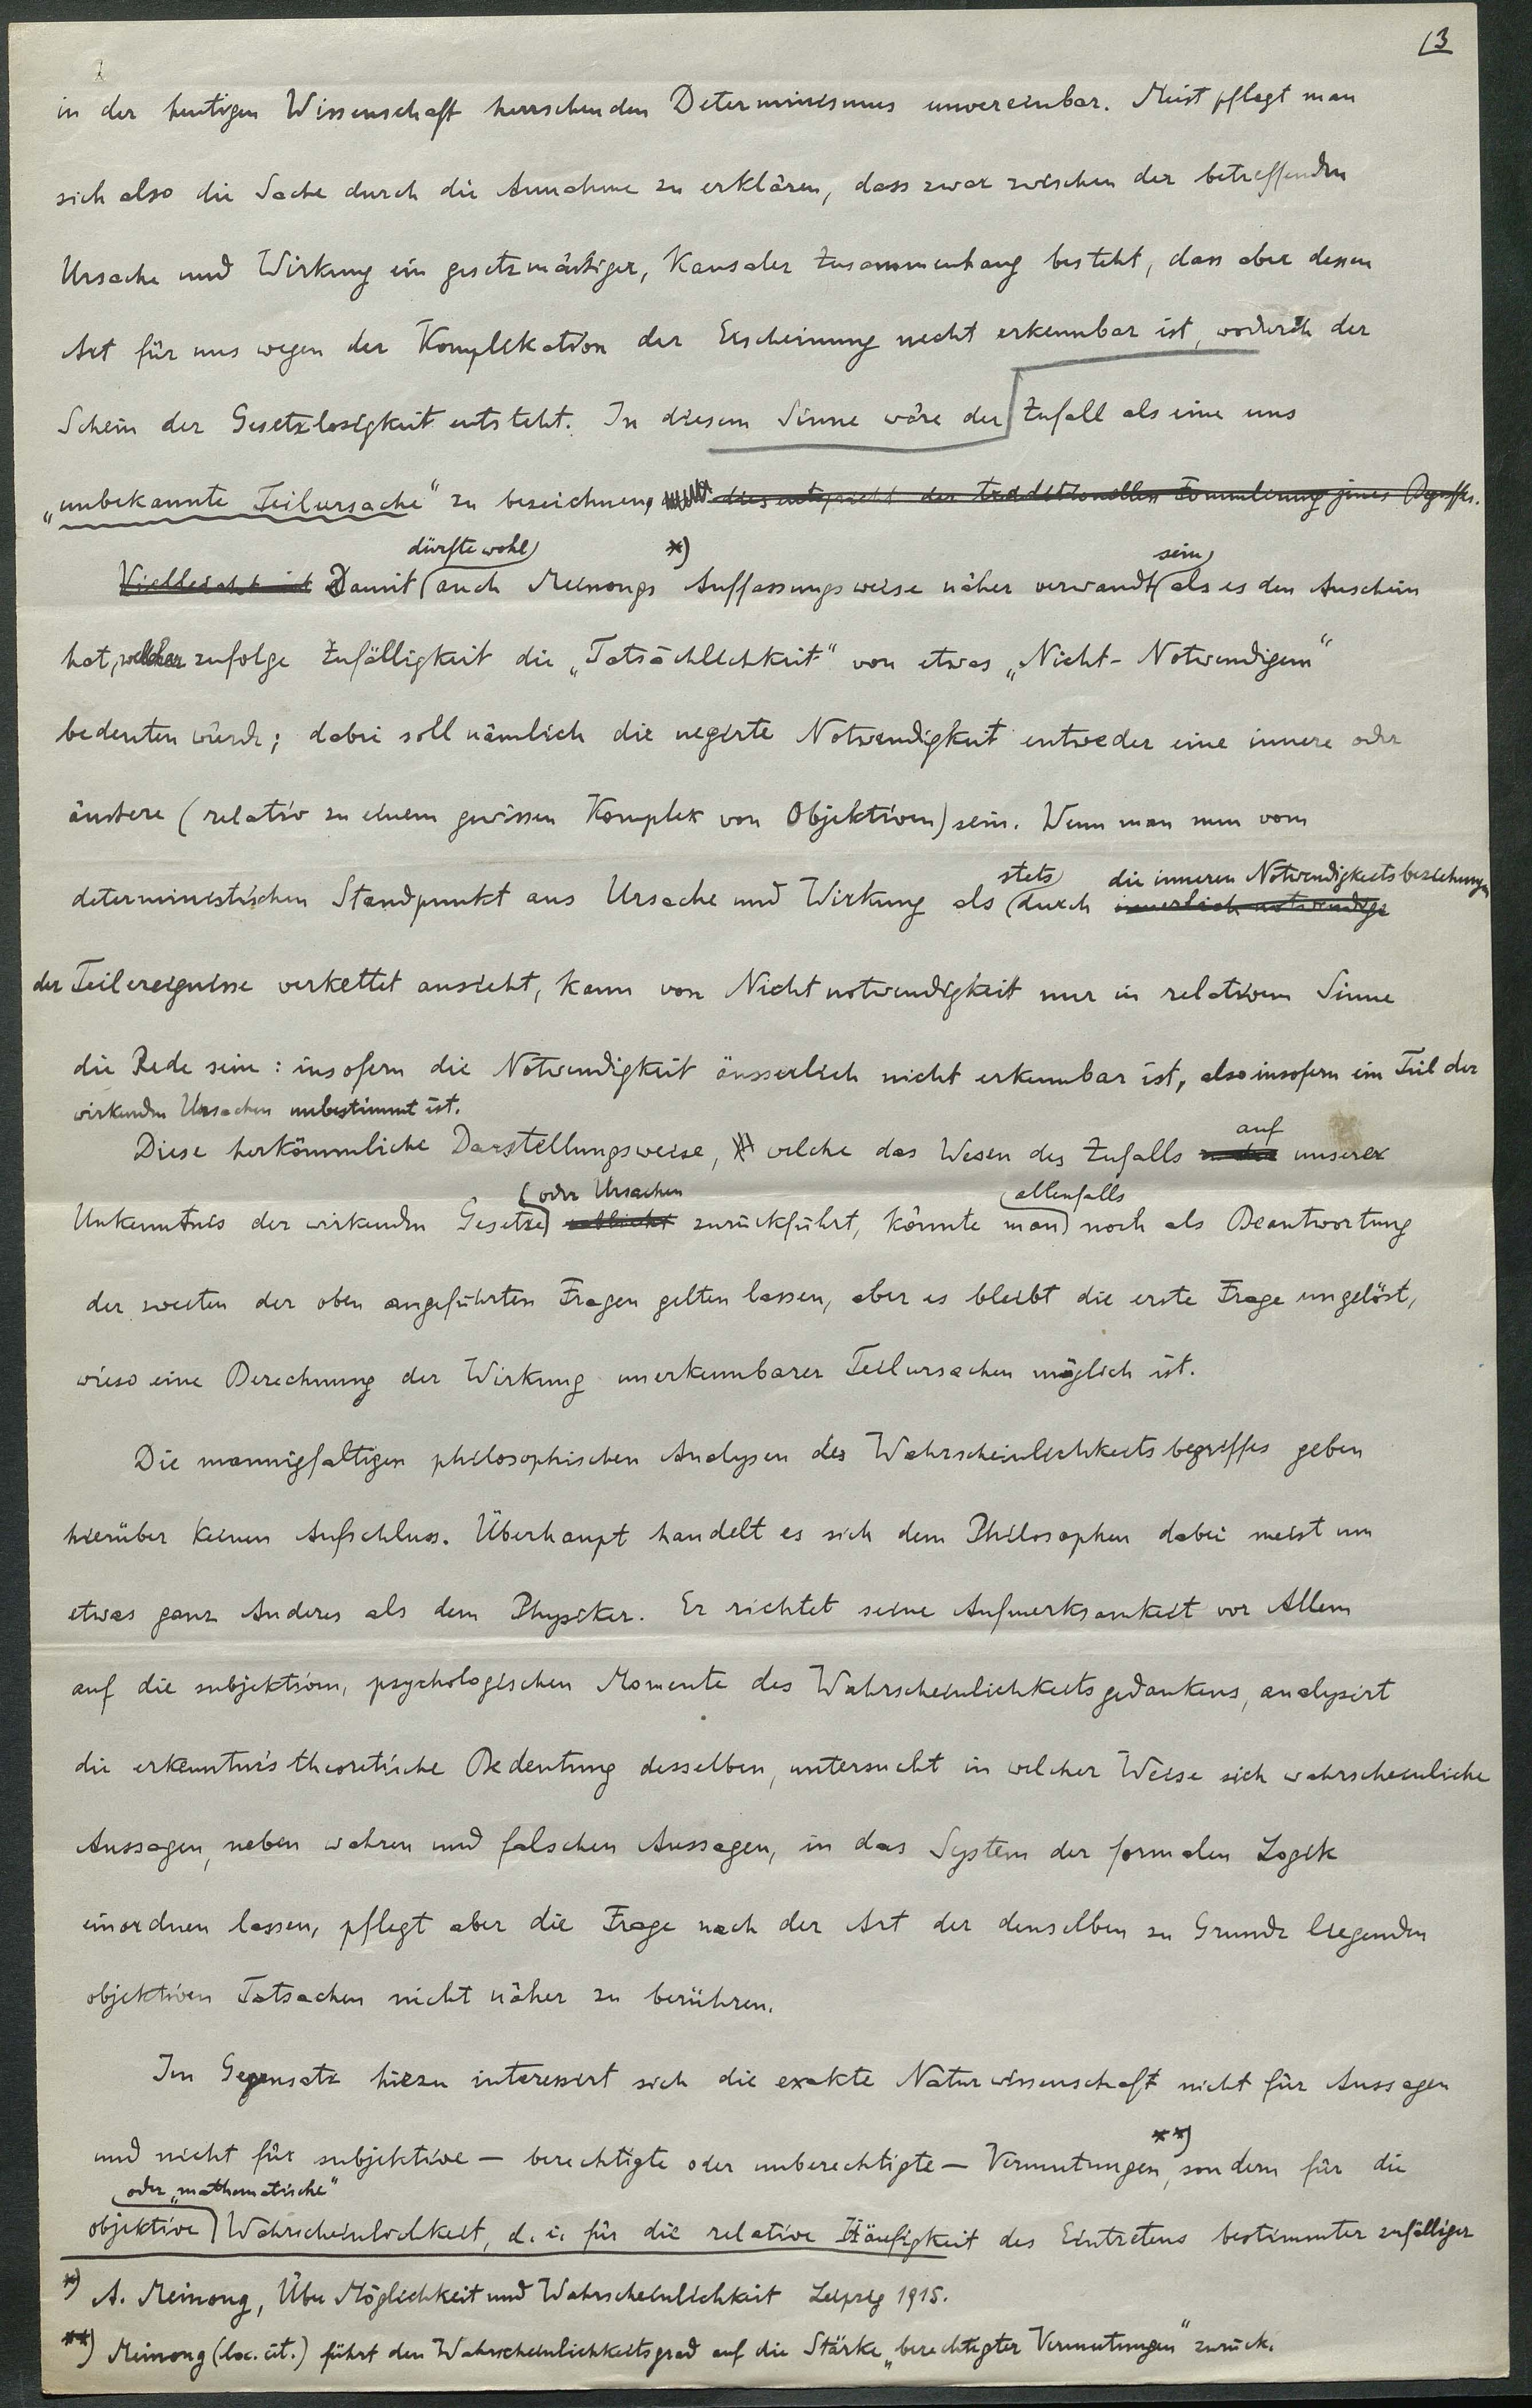 (3
in der heutigen Wissenschaft herrschenden Determinismus unvereinbar. Meist pflegt man
sich also die Sache durch die Annahme zu erklären, dass zwar zwischen der betreffenden
Ursache und Wirkung ein gesetzmässiger, kausaler Zusammenhang besteht, dass aber dessen
Art für uns wegen der Komplikation der Erscheinung nicht erkennbar ist, wodurch der
Schein der Gesetzlosigkeit entsteht. In diesem Sinne wäre der Zufall als eine uns
„unbekannte Teilursache" zu bezeichnen, dies entspricht der traditionellen Formulierung jenes Begriffes.
dürfte wohl *) sein
Vielleicht ist Damit auch Meinongs Auffassungsweise näher verwandt als es den Anschein
hat, welcher zufolge Zufälligkeit die „Tatsächlichkeit" von etwas „Nicht-Notwendigem"
bedeuten würde; dabei soll nämlich die negirte Notwendigkeit entweder eine innere oder
äussere (relativ zu einem gewissen Komplex von Objektiven) sein. Wenn man nun vom
stets die inneren Notwendigkeitsbeziehungen
deterministischen Standpunkt aus Ursache und Wirkung als durch innerlich notwendige
der Teilereignisse verkettet ansieht, kann von Nichtnotwendigkeit nur in relativem Sinne
die Rede sein: insofern die Notwendigkeit äusserlich nicht erkennbar ist, also insofern ein Teil der
wirkenden Ursachen unbestimmt ist.
auf
Diese herkömmliche Darstellungsweise, welche das Wesen des Zufalls unserer
(oder Ursachen allenfalls
Unkenntnis der wirkenden Gesetze) zurückführt, könnte man noch als Beantwortung
der zweiten der oben angeführten Fragen gelten lassen, aber es bleibt die erste Frage ungelöst,
wieso eine Berechnung der Wirkung unerkennbarer Teilursachen möglich ist.
Die mannigfaltigen philosophischen Analysen des Wahrscheinlichkeitsbegriffes geben
hierüber keinen Aufschluss. Überhaupt handelt es sich dem Philosophen dabei meist um
etwas ganz Anderes als dem Physiker. Er richtet seine Aufmerksamkeit vor Allem
auf die subjektiven, psychologischen Momente des Wahrscheinlichkeitsgedankens, analysirt
die erkenntnistheoretische Bedeutung desselben, untersucht in welcher Weise sich wahrscheinliche
Aussagen, neben wahren und falschen Aussagen, in das System der formalen Logik
einordnen lassen, pflegt aber die Frage nach der Art der denselben zu Grunde liegenden
objektiven Tatsachen nicht näher zu berühren.
Im Gegensatz hiezu interessirt sich die exakte Naturwissenschaft nicht für Aussagen
**)
und nicht für subjektive – berechtigte oder unberechtigte – Vermutungen, sondern für die
oder „mathematische"
objektive Wahrscheinlichkeit, d. i. für die relative Häufigkeit des Eintretens bestimmter zufälliger
*) A. Meinong, Über Möglichkeit und Wahrscheinlichkeit Leipzig 1915.
**) Meinong (loc. cit.) führt den Wahrscheinlichkeitsgrad auf die Stärke „berechtigter Vermutungen" zurück.